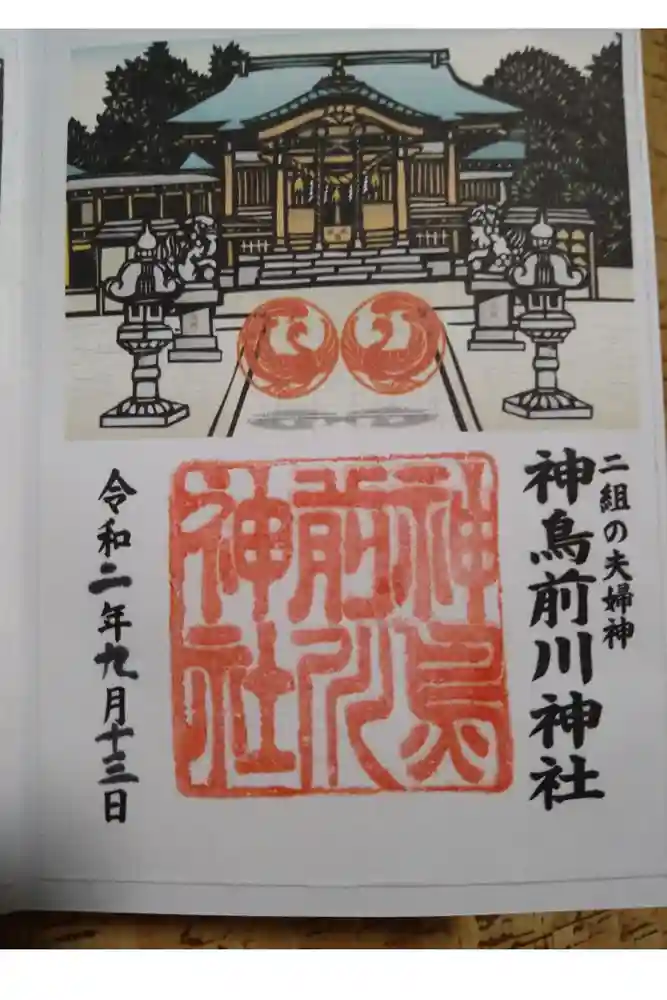 二組の夫婦神
神鳥前川神社
神鳥前川神社
令和二年九月十三日